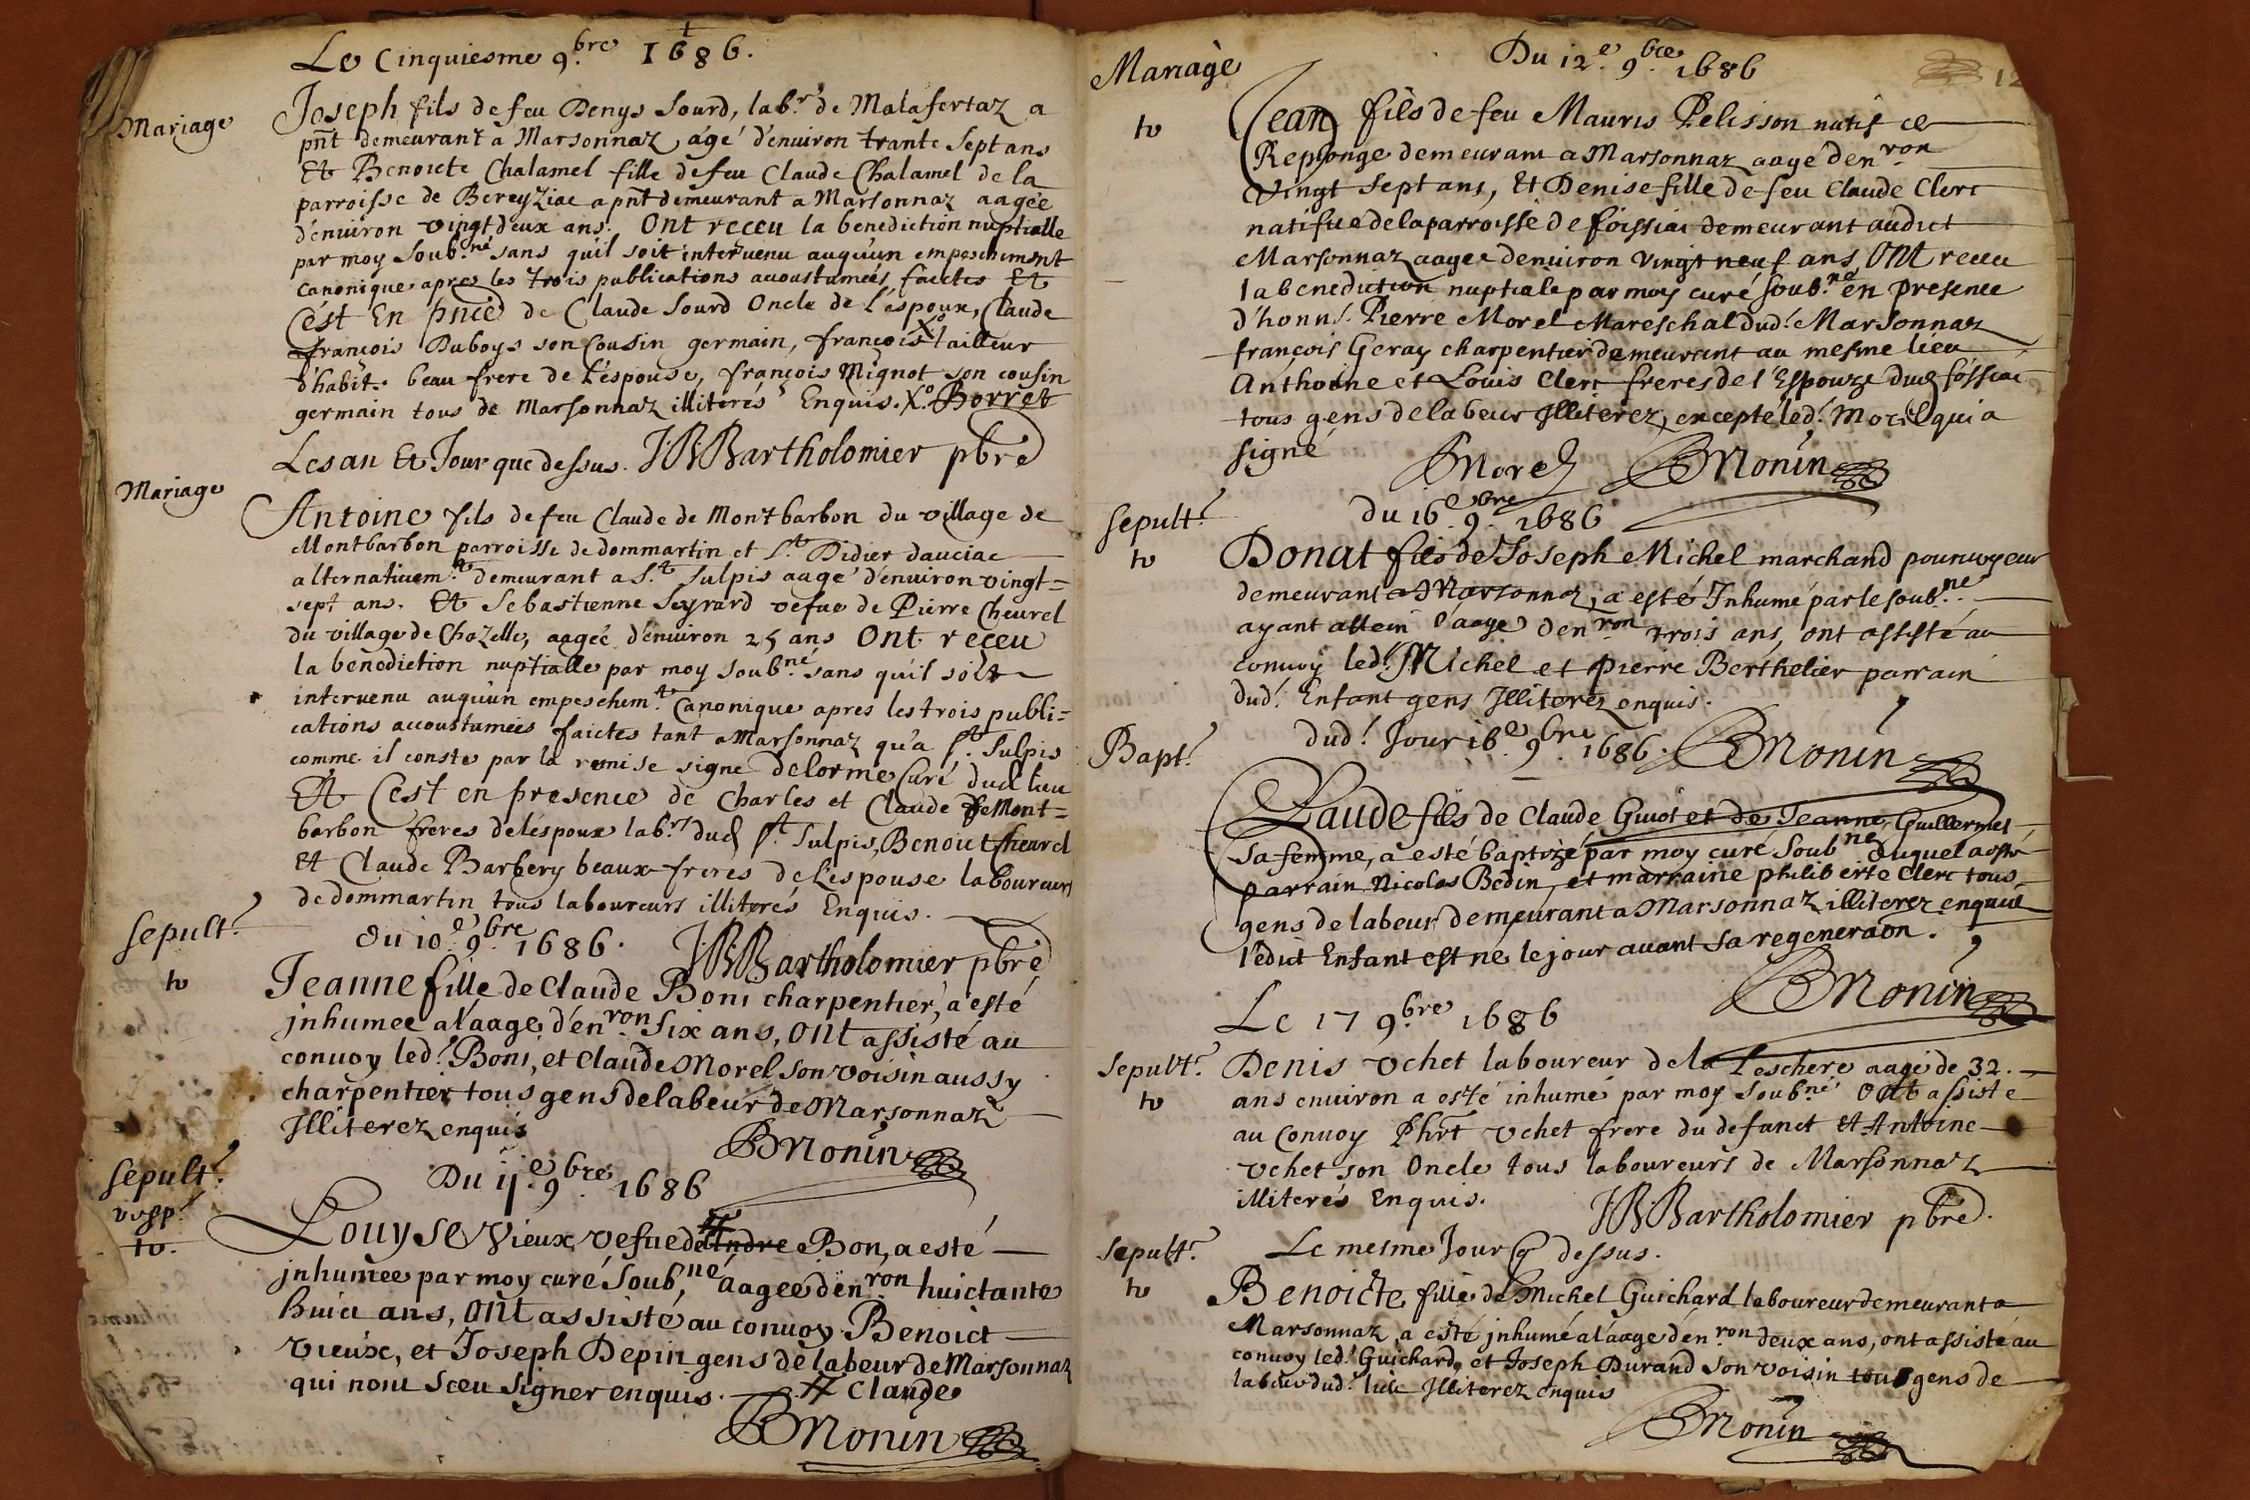 Le Cinquiesme 9.bre 1686.
Mariage
Joseph fils de feu Denys Sourd, lab.r de Malafertaz a
pñt demeurant a Marsonnaz, agé d'enuiron trante Sept ans
Et Benoicte Chalamel fille defeu Claude Chalamel de la
parroisse de Bereyziac a pñt demeurant a Marsonnaz aagée
d'enuiron vingt deux ans. Ont receu la benediction nuptialle
par moy Soub.né sans qu'il soit interuenu auquun empeschement
Canonique apres les trois publications accoustumées faictes Et
C'est En pñce de Claude Sourd Oncle de l'éspoux, Claude
françois Duboys son Cousin germain, françois X.o tailleur
d'habit. beau frere de l'éspouse, françois Mignot son cousin
germain tous de Marsonnaz illiterés Enquis. X.o Borret
Mariage
Lesan Et Jour que dessus. JBBartholomier pbre
Antoine fils de feu Claude de Montbarbon du village de
Montbarbon parroisse de dommartin et S.t Didier dauciac
alternatiuem.t demeurant a S.t Sulpis aagé d'enuiron vingt=
sept ans. Et Sebastienne Seyrard vefue de Pierre Cheurel
du village de Chazelle, aagée d'enuiron 25 ans Ont receu
la benediction nuptialle par moy soub.né sans qu'il soit
interuenu auquun empeschem.t Canonique apres les trois publi=
cations accoustumées faictes tant a Marsonnaz qu'a S.t Sulpis
comme il conste par la remise signe Delorme Curé dud lieu
Et C'est en presence de Charles et Claude de Mont=
barbon freres de lespoux lab.rs dud S.t Sulpis, Benoict Cheurel
Et Claude Barbery beaux-freres de L'espouse laboureurs
de dommartin tous laboureurs illiterés Enquis.
Sepult.e
to
du 10.e 9.bre 1686. JBBartholomier pbre
Jeanne fille de Claude Boni charpentier, a esté
jnhumee a l'aage d'en.ron Six ans, Ont assisté au
conuoy led.t Boni, et Claude Morel son voisin aussy
charpentier tous gens de labeur de Marsonnaz
Jlliterez enquis
BMonin
Sepult.e
to.
Du ij.e 9.bre 1686
Louyse Vieux vefue de # Andre Bon, a esté
jnhumee par moy curé Soub.né aageé d'en.ron huictante
huict ans, Ont assisté au conuoy Benoict
Vieux, et Joseph Depin gens de labeur de Marsonnaz
qui nont sceu signer enquis. # Claude
BMonin
Mariagè
to
Du 12.e 9.bre 1686
12
Jean fils de feu Mauris Pelisson natif de
Replonge demeurant a Marsonnaz aagé d'en.ron
Vingt Sept ans, Et Denise fille de feu Claude Clerc
natifue de la parroisse de foissiac demeurant audict
Marsonnaz aagee denuiron vingt neuf ans Ont receu
la benediction nuptiale par moy curé soub.né en presence
d'honn.t Pierre Morel Mareschal dud.t Marsonnaz
françois Geray charpentier demeurant au mesme lieu
Anthoine et Louis Clerc freres de l'Espouze dud fossiac
tous gens de labeur Jlliterez, excepté led.t Morel qui a
signé
PMorel BMonin
Sepult.e
to
du 16.e 9.bre 1686
Donat fils de Joseph Michel marchand pouruoyeur
demeurant a Marsonnaz, a esté Jnhumé par le soub.né
ayant attein l'aage d'en.ron trois ans, ont assisté au
conuoy led.t Michel et Pierre Berthelier parrain
dud.t Enfant gens Jlliterez enquis.
Bapt.e
dud.t Jour 16.e 9.bre 1686. BMonin
Claude fils de Claude Guiot et de Jeanne Guillermet
Sa femme, a esté baptizé par moy curé Soub.né duquel a esté
parrain Nicolas Bedin, et marraine philiberte Clerc tous
gens de labeur demeurant a Marsonnaz illiterez enquis
l'edict Enfant est né le jour auant sa regeneraon.
BMonin
Le 17 9.bre 1686
Sepult.e
to
Denis Vchet laboureur de la Leschere aagé de 32.
ans enuiron a esté inhumé par moy Soub.né Ont assisté
au Conuoy Phrt Vchet frere du defunct Et Antoine
Vchet son Oncle tous laboureurs de Marsonnaz
illiterés Enquis. JBBartholomier pbre.
Sepult.e
to
Le mesme Jour q dessus.
Benoicte fille de Michel Guichard laboureur demeurant a
Marsonnaz a esté jnhumé a l'aage d'en.ron deux ans, ont assisté au
conuoy led.t Guichard, et Joseph Durand son voisin tous gens de
labeur dud.t lieu Jlliterez enquis
BMonin